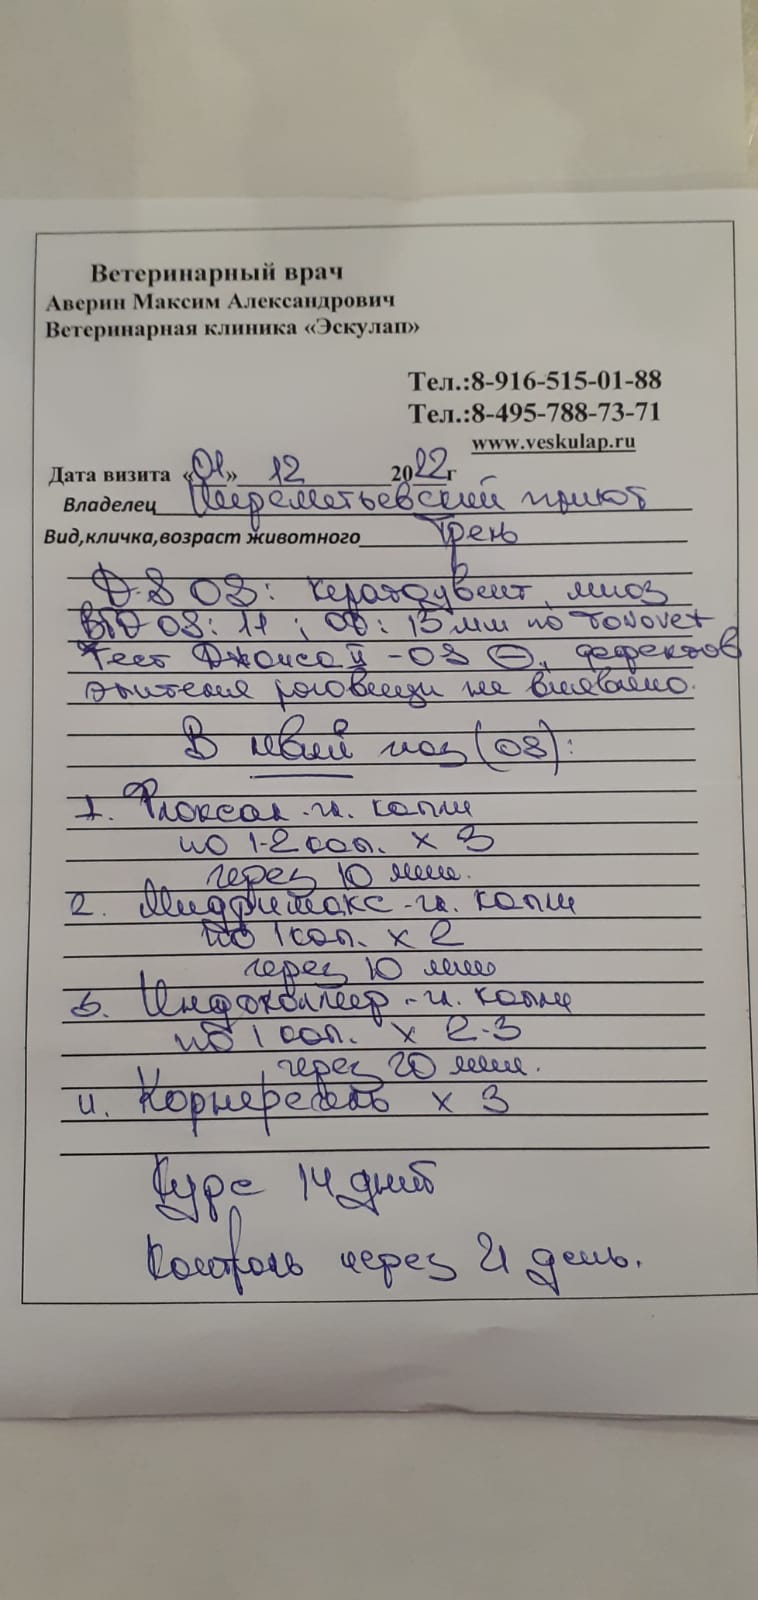 Ветеринарный врач
Аверин Максим Александрович
Ветеринарная клиника «Эскулап»
Тел.:8-916-515-01-88
Тел.:8-495-788-73-71
www.veskulap.ru
Дата визита «01» 12 2022г
Владелец Шереметьевский приют
Вид,кличка,возраст животного Грень
D.S OS: кератоувеит, миоз
ВГД OS: 11 ; OD: 13 мм по Tonovet
Тест Джонсай - OS ⊖, дефектов
эпителия роговицы не выявлено.
В левый глаз (OS):
1. Флоксал - гл. капли
по 1-2 кап. х 3
через 10 мин.
2. Мидримакс - гл. капли
по 1 кап. х 2
через 10 мин
3. Индоколлир - гл. капли
по 1 кап. х 2-3
через 20 мин.
4. Корнерегель х 3
Курс 14 дней
Контроль через 21 день.